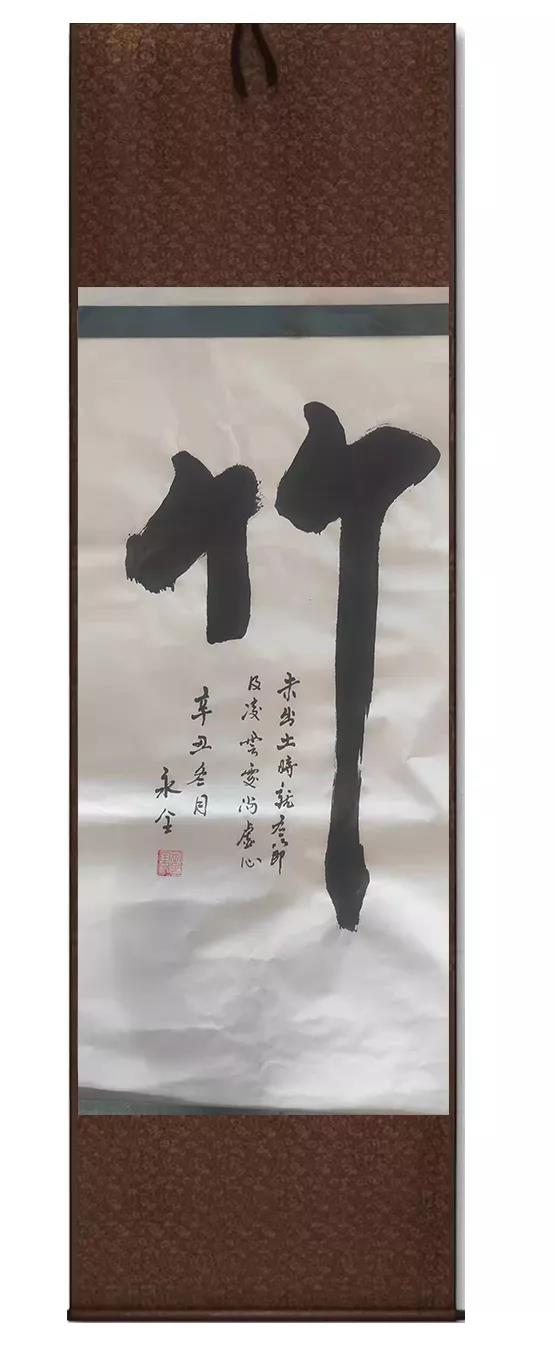 竹
未出土時就有節
及凌雲處尚虛心
辛丑冬月
永全